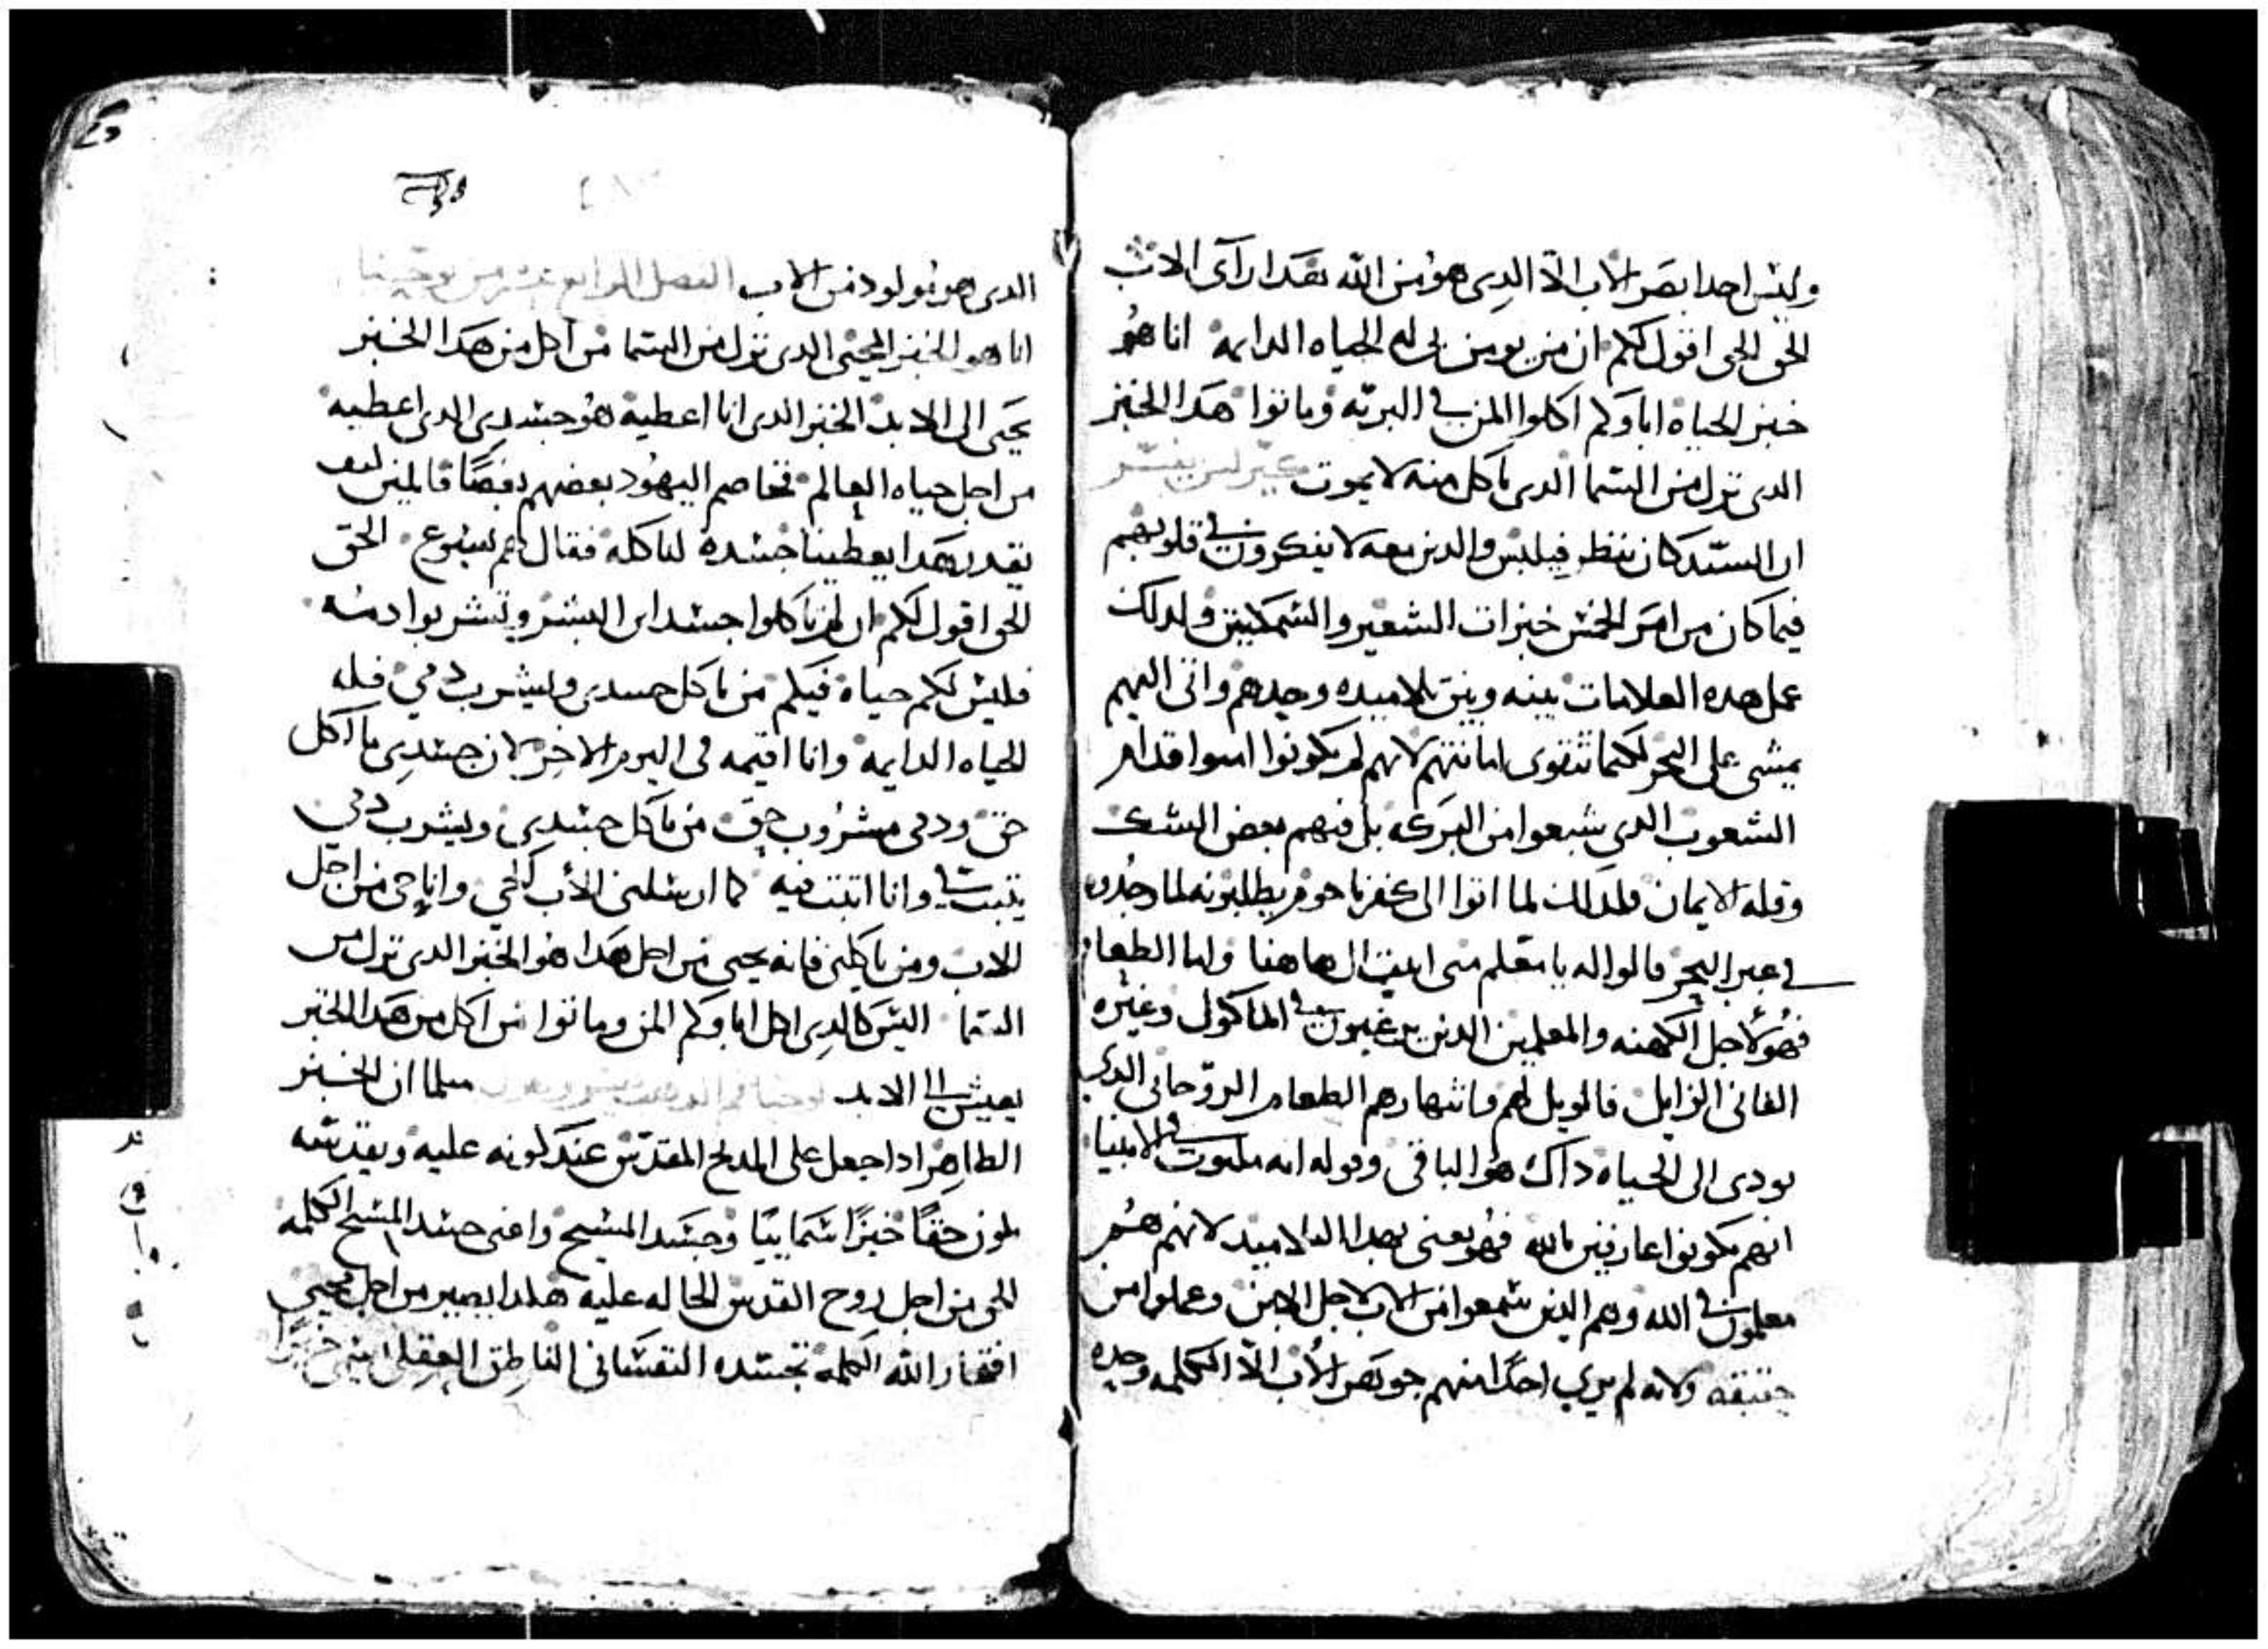 وليس احدا بصر الاب الا الدى هو من الله بهدا رآى الاب
الحق الحق اقول لكم ان من يومن بى له الحياه الدايمه انا هو
خبز الحياه اباوكم اكلوا المن فى البريه وماتوا هدا الخبز
الدى نزل من السما الدى ياكل منه لا يموت يفسر
ان السيد كان ينظر فيلبس والدين معه لا يفكرون فى قلوبهم
فيما كان من امر الخمس خبزات الشعير والسمكتين ولدلك
عمل هده العلامات بينه وبين تلاميده وحدهم واتى اليهم
يمشى على البحر لكيما تتقوى امانتهم لانهم لم يكونوا امنوا قدام
الشعوب الدى شبعوا من البركه بل فيهم بعض الشك
وقله الايمان فلدلك لما اتوا الى كفرناحوم يطلبونه لما وجدوه
فى عبر البحر قالوا له يا معلم متى اتيت الى هاهنا واما الطعام
فهو لاجل الكهنه والمعلمين الدين يرغبون فى الماكول وغيره
الفانى الزايل فالويل لهم وانتهارهم الطعام الروحانى الدى
يودى الى الحياه داك هو الباقى وقوله انه مكتوب فى الانبيا
انهم يكونوا عارفين بالله فهو يعنى بهدا التلاميد لانهم هم
معلمون فى الله وهم الدين سمعوا من الاب لاجل الابن وعملوا من
حقيقه ولانه لم يرى احدا منهم جوهر الاب الا الكلمه وحده
الدى هو مولود من الاب الفصل الرابع عشر من يوحنا
انا هو الخبز المحيى الدى نزل من السما من اكل من هدا الخبز
يحيى الى الابد الخبز الدى انا اعطيه هو جسدى الدى اعطيه
من اجل حياه العالم فخاصم اليهود بعضهم بعضا قايلين كيف
يقدر هدا يعطينا جسده لناكله فقال لهم يسوع الحق
الحق اقول لكم ان لم تاكلوا جسد ابن البشر وتشربوا دمه
فليس لكم حياه فيكم من ياكل جسدى ويشرب دمى فله
الحياه الدايمه وانا اقيمه فى اليوم الاخر لان جسدى ماكل
حق ودمى مشروب حق من ياكل جسدى ويشرب دمى
يتبت فى وانا اتبت فيه كما ارسلنى الاب الحى وانا حى من اجل
الاب ومن ياكلنى فانه يحيى من اجل هدا هو الخبز الدى نزل من
السما ليس كالدى اكل اباوكم المن وماتوا من اكل من هدا الخبز
يعيش الى الابد يوحنا فم الدهب يفسر ويقول مثلما ان الخبز
الطاهر ادا جعل على المدبح المقدس عند كونه عليه وتقديسه
يكون حقا خبزا سماييا وجسد المسيح واعنى جسد المسيح الكلمه
الحى من اجل روح القدس الحاله عليه هكدا يصير من اجل مجى
افتقار الله الكلمه تجسده النفسانى الناطق العقلى